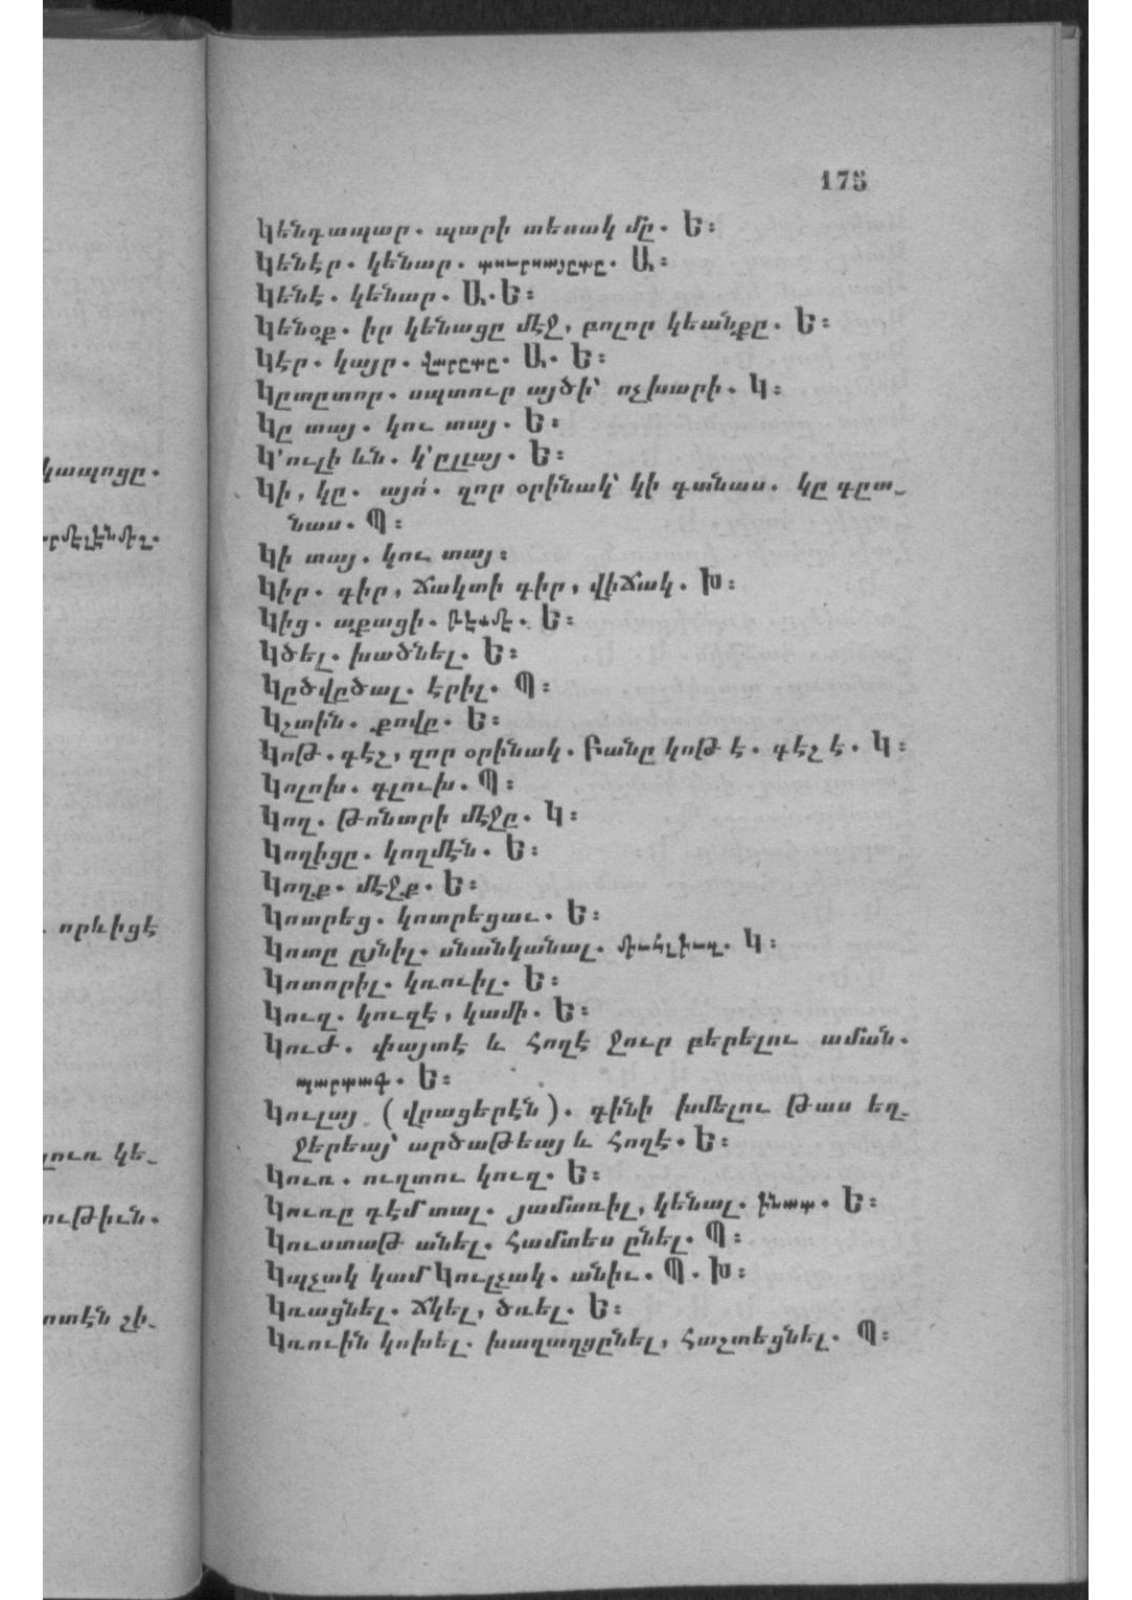 175
Կենդապար. պարի տեսակ մը. Ե:
Կեներ. կենար. Ա:
Կենէ. կենար. Ա.Ե:
Կենօք. իր կենացը մէջ, բոլոր կեանքը. Ե:
Կէր. կայր. Ա. Ե:
Կըտըտոր. սպտուր այծի՝ ոչխարի. Կ:
Կը տայ. կու տայ. Ե:
Կ՚ուլի ևն. կ՚ըլլայ. Ե:
կապոցը.
Կի, կը. այո՛. զոր օրինակ՝ կի գտնաս. կը գըտ_
նաս. Պ:
Կի տայ. կու տայ:
Կիր. գիր, ճակտի գիր, վիճակ. Խ:
Կից. աքացի. Ե:
Կծել. խածնել. Ե:
Կըծվըծալ. էրիլ. Պ:
Կշտին. քովը. Ե:
Կոթ. գէշ, զոր օրինակ. Բանը կոթ է. գէշ է. Կ:
Կոլոխ. գլուխ. Պ:
Կող. թոնտրի մէջը. Կ:
Կողիցը. կողմէն. Ե:
Կողք. մէջք. Ե:
Կոտրեց. կոտրեցաւ. Ե:
որևիցէ
Կոտը ըյնիլ. սնանկանալ. Կ:
Կոտորիլ. կռուիլ. Ե:
Կուզ. կուզէ, կամի. Ե:
Կուժ. փայտէ և հողէ ջուր բերելու աման.
պարտագ. Ե:
Կուլայ (վրացերէն). գինի խմելու թաս եղ_
ջերեայ՝ արծաթեայ և հողէ. Ե:
Կուռ. ուղտու կուզ. Ե:
Կուռը դէմ տալ. յամառիլ, կենալ. Ե:
ութիւն.
Կուստաթ անել. համտես ընել. Պ:
Կպչակ կամ Կուլչակ. անիւ. Պ. Խ:
Կռացնել. ճկել, ծռել. Ե:
ոտէն չի_
Կռուին կոխել. խաղաղցընել, հաշտեցնել. Պ: